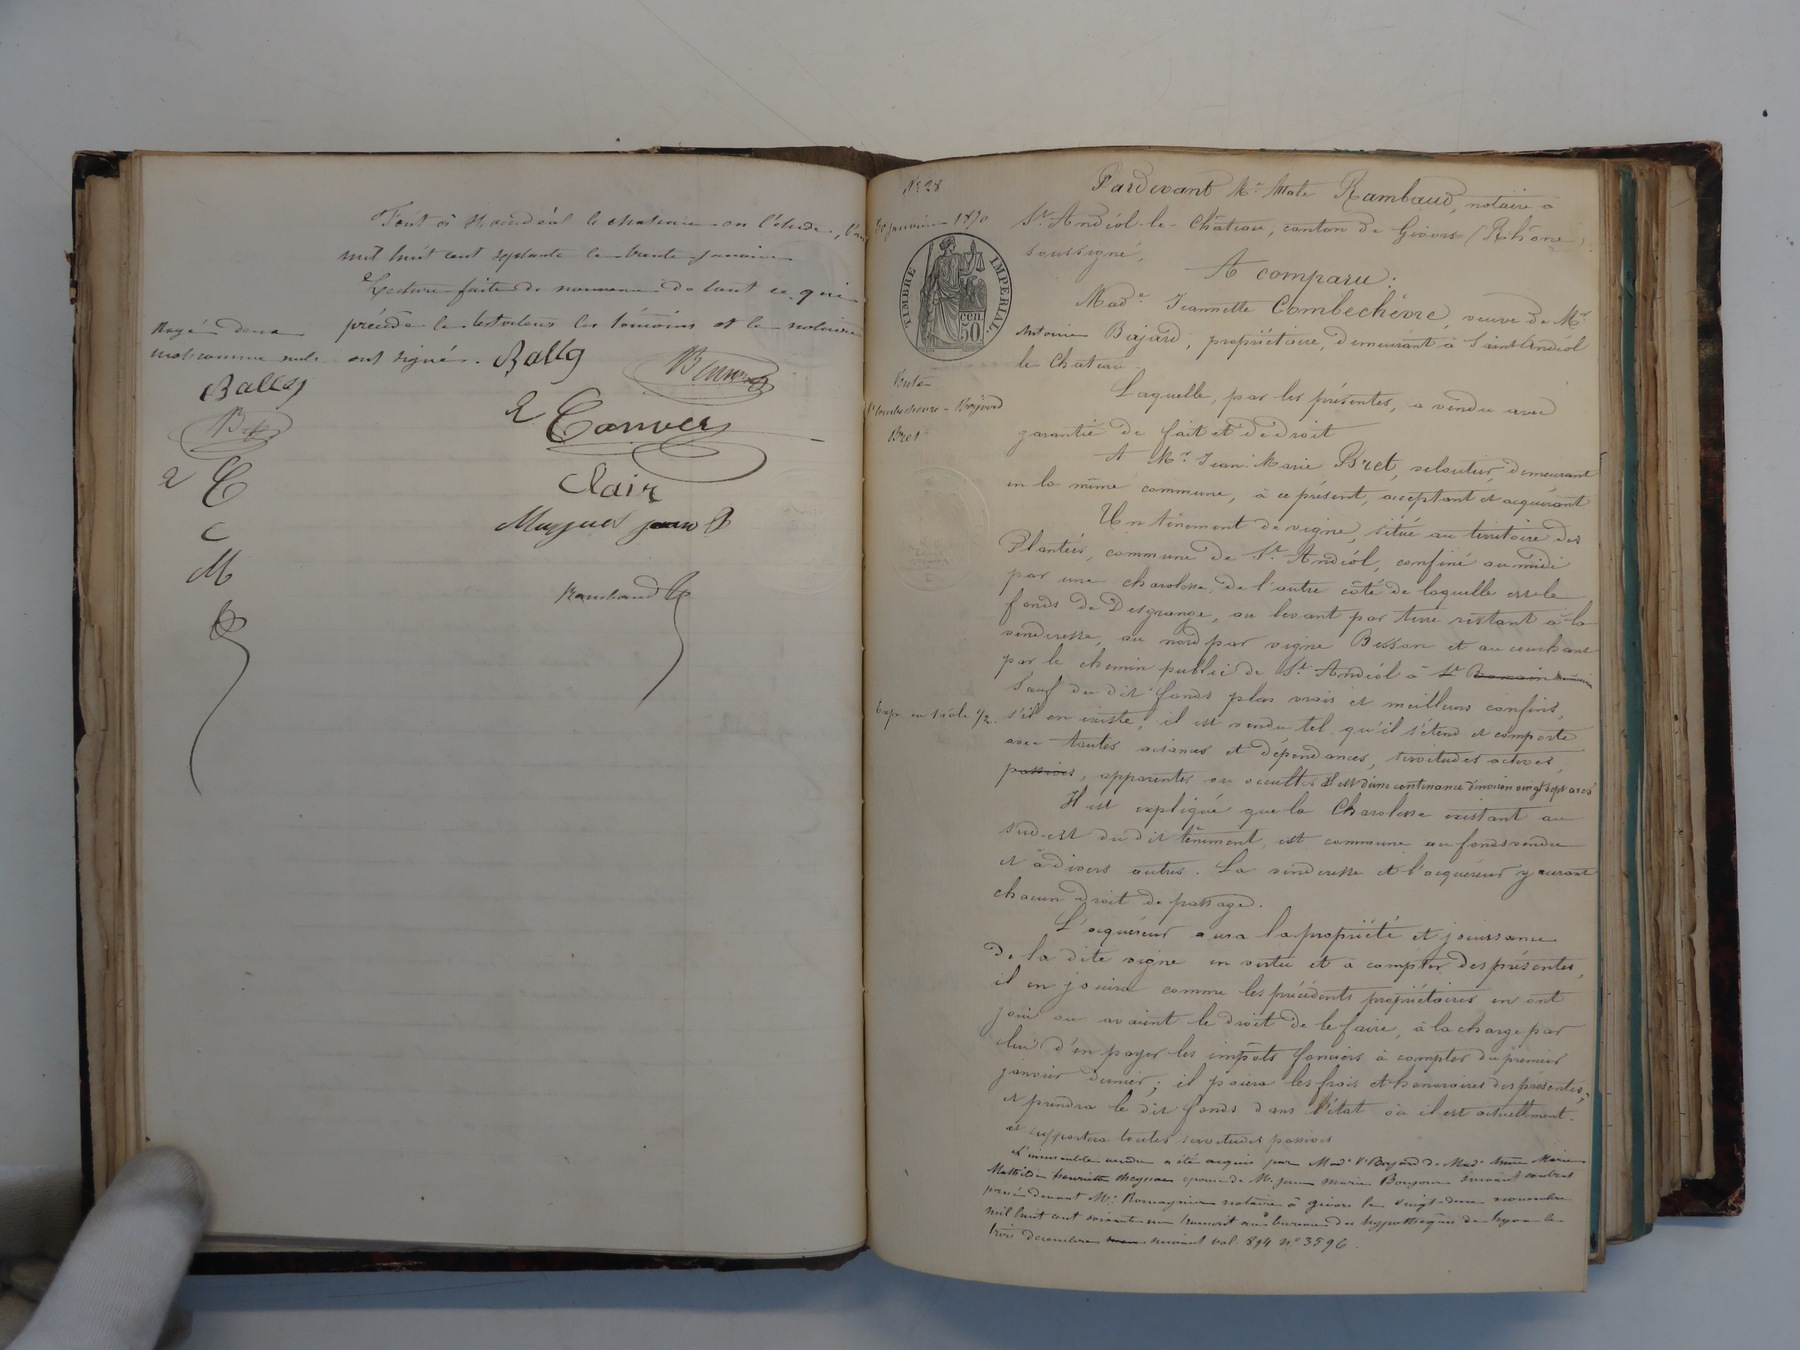 Fait à St Andéol le chateau en l'étude, l'an
mil huit cent septante le trente janvier
Lecture faite de nouveau de tout ce qui
précède le testateur les témoins et le notaire
ont signé.
Rayé deux
mots comme nuls
Bally
Clair
Rambaud
Bally
B
C
C
M
R
N° 28
30 janvier 1870
TIMBRE IMPERIAL
50 cen
Vente
Ve Combechèvre - Bajard
Bret
Exp en 1 rôle 1/2
Pardevant Me Rambaud, notaire à
St Andéol-le-Château, canton de Givors (Rhône)
soussigné,
A comparu:
Made Jeannette Combechèvre, veuve de Mr
Antoine Bajard, propriétaire, demeurant à Saint Andéol
le Chateau
Laquelle, par les présentes, a vendu avec
garantie de fait et de droit
A Mr Jean Marie Bret, demeurant
en la même commune, à ce présent, acceptant et acquérant
Un tènement de vigne, situé au territoire des
Plantées, commune de St Andéol, confiné au midi
par une charolesse, de l'autre côté de laquelle est le
fonds de Desgrange, au levant par terre restant à la
venderesse, au nord par vigne Besson et au couchant
par le chemin public de St Andéol à St Romain
Sauf du dit fonds plus vrais et meilleurs confins,
s'il en existe, il est vendu tel qu'il s'étend et comporte
avec toutes aisances et dépendances, servitudes actives,
passives, apparentes ou occultes Il est d'une contenance d'environ vingt sept ares
Il est expliqué que la Charolesse existant au
sud-est du dit tènement, est commune au fonds vendu
et à divers autres. La venderesse et l'acquéreur y auront
chacun droit de passage.
L'acquéreur aura la propriété et jouissance
de la dite vigne en vertu et à compter des présentes,
il en jouira comme les précédents propriétaires en ont
joui ou avaient le droit de le faire, à la charge par
lui d'en payer les impôts fonciers à compter du premier
janvier dernier; il paiera les frais et honoraires des présentes,
et prendra le dit fonds dans l'état où il est actuellement.
et supportera toutes servitudes passives
L'immeuble vendu a été acquis par Made Ve Bajard de Made Anne Marie
Mathilde henriette épouse de Mr jean marie suivant contrat
passé devant Me Romagnier notaire à givors le vingt-deux novembre
mil huit cent soixante un transcrit au bureau des hypothèques de lyon le
trois décembre suivant vol. 894 n° 3596.